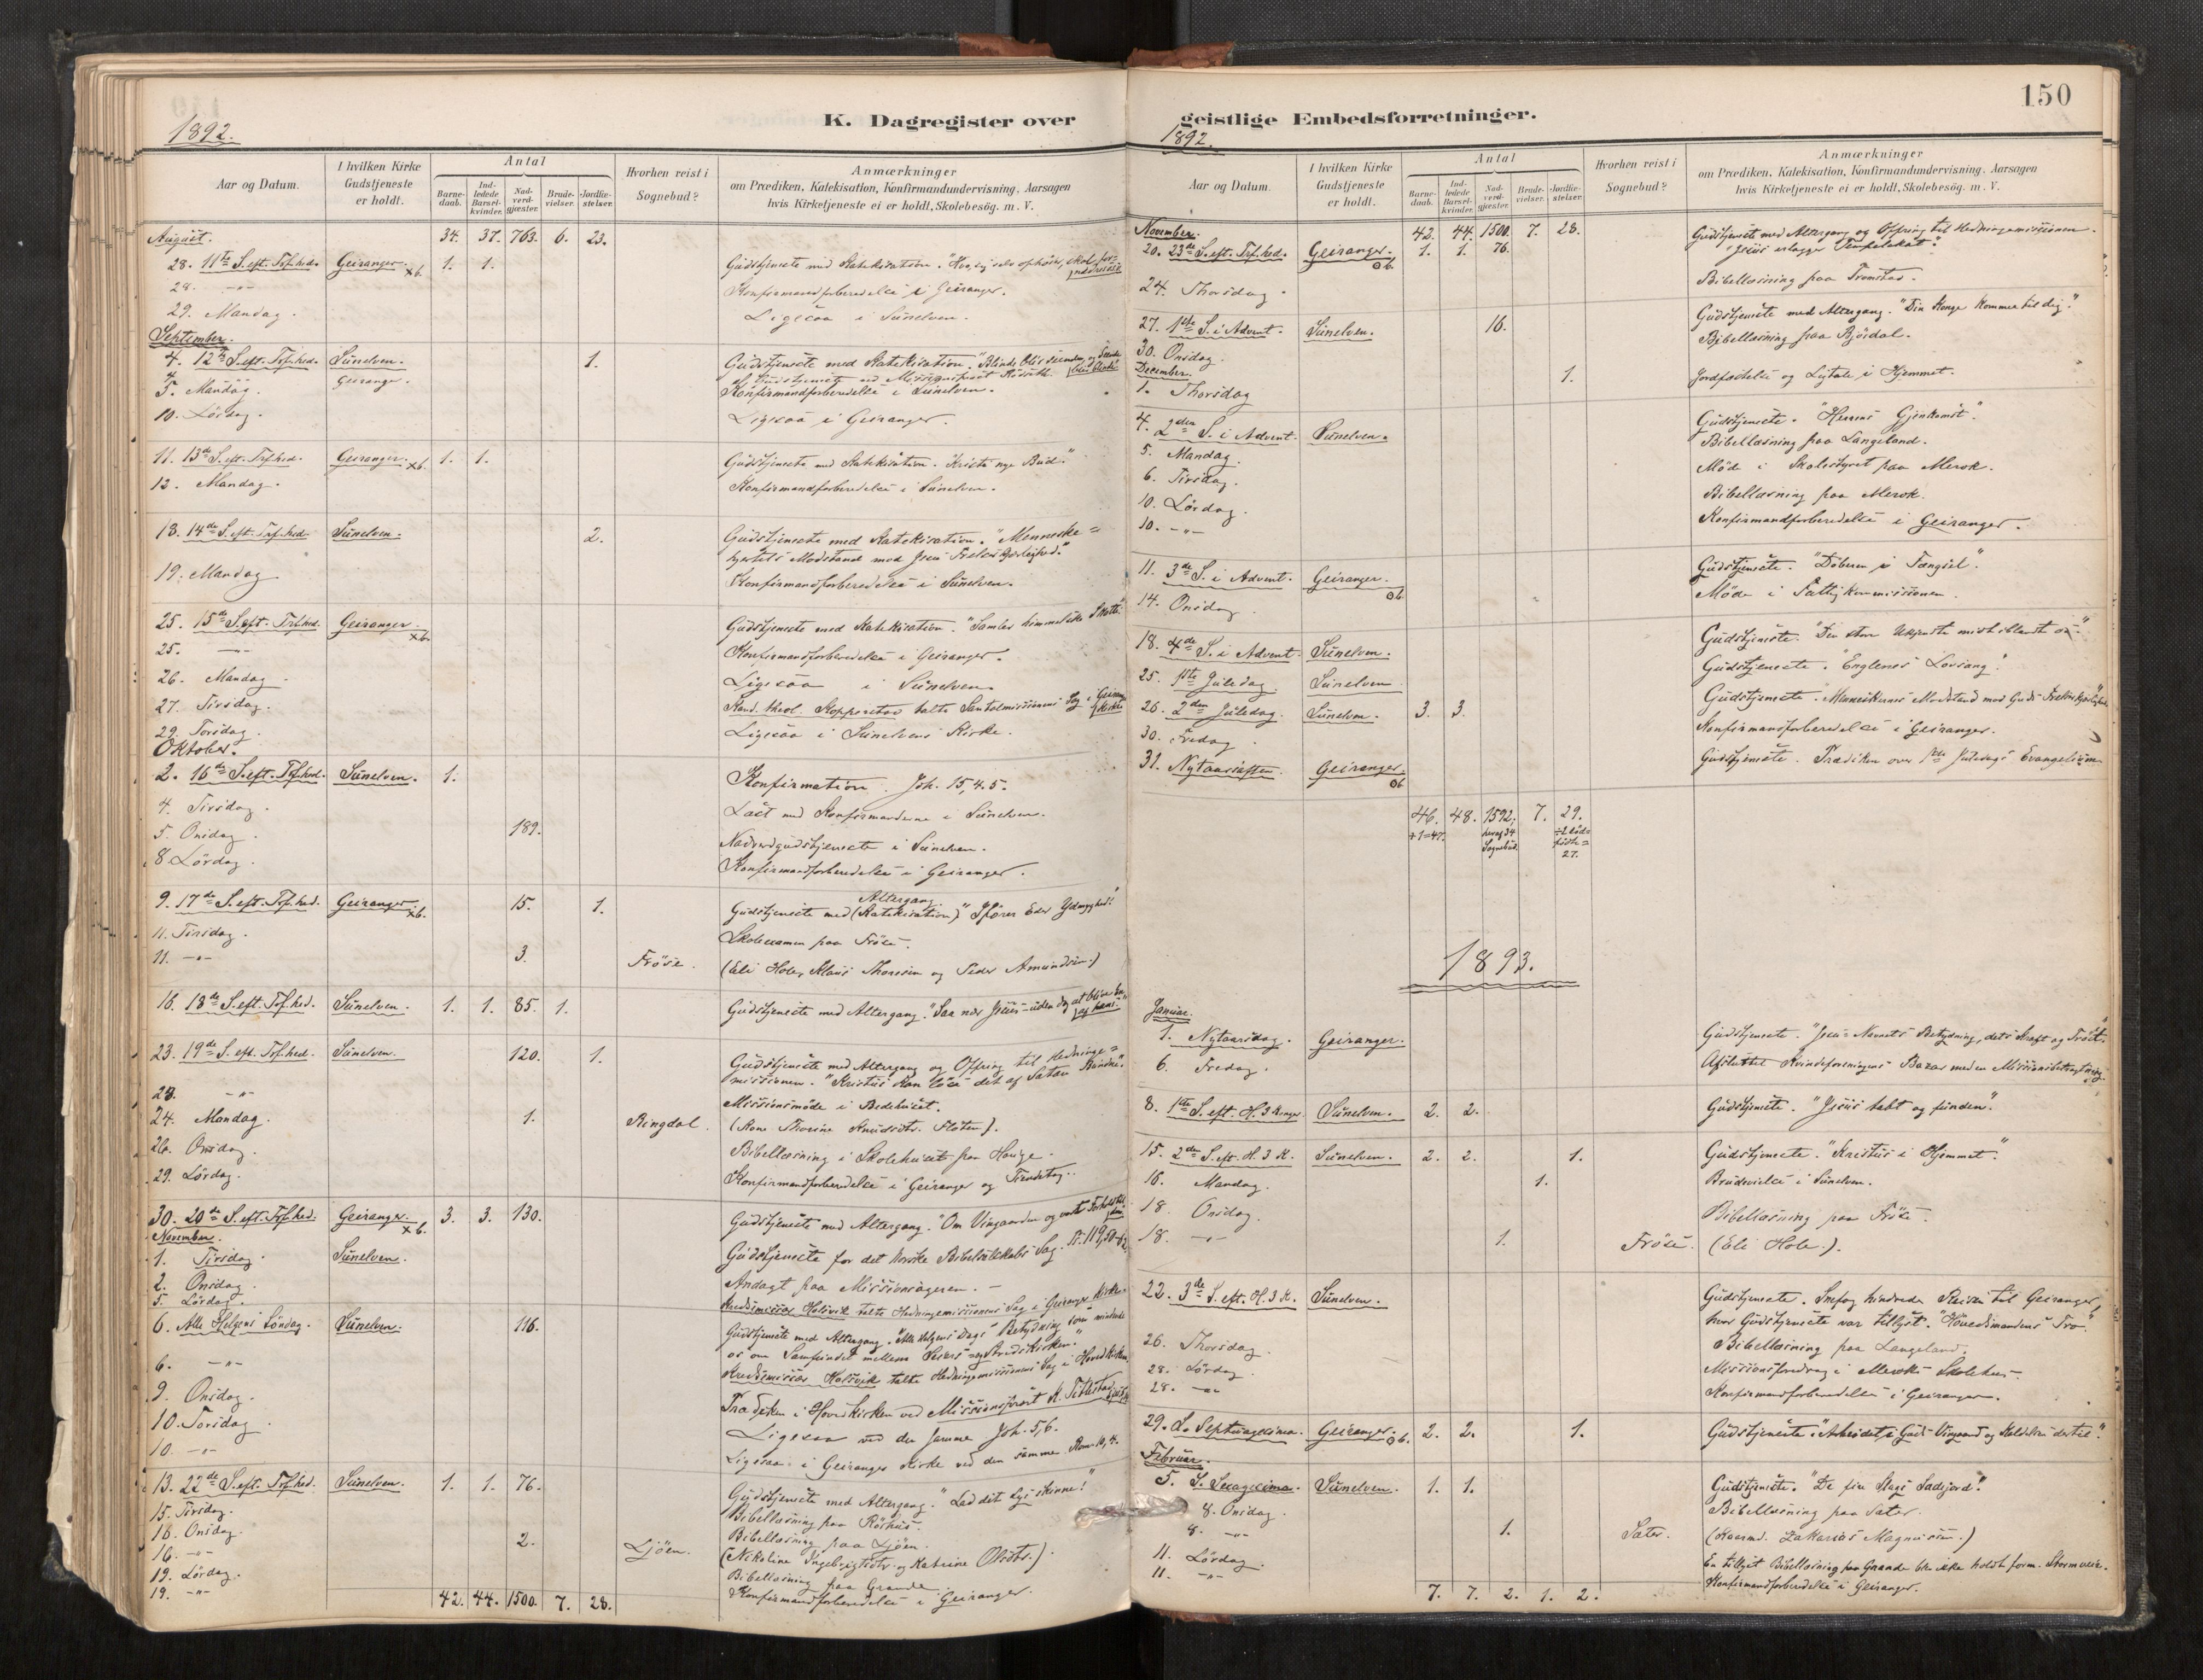 150
K. Dagregister over geistlige Embedsforretninger.
1892.
Aar og Datum.
I hvilken Kirke Gudstjeneste er holdt.
Antal
Barnedaab.
Indledede Barselkvinder.
Nadverdgjæster.
Brudevielser.
Jordfæstelser.
Hvorhen reist i Sognebud?
Anmærkninger
om Prædiken, Katekisation, Konfirmandundervisning, Aarsagen
hvis Kirketjeneste ei er holdt, Skolebesøg. m. V.
August. 34. 37. 763. 6. 23.
28. 11te S. eft. Tref.hed. Geiranger. x6. 1. 1. Gudstjeneste med Katekisation.
28. -"- Konfirmandforberedelse i Geiranger.
29. Mandag. Ligesaa i Sunelven.
September.
4. 12te S. eft. Tref.hed. Sunelven. 1. Gudstjeneste med Katekisation. "Blinde blir seende, og Seende blir blinde"
4. Geiranger. Gudstjeneste ved Missionsprest
5. Mandag. Konfirmandforberedelse i Sunelven.
10. Lördag. Ligesaa i Geiranger.
11. 13de S. eft. Tref.hed. Geiranger. x6. 1. 1. Gudstjeneste med Katekisation. Kristi nye Bud."
12. Mandag. Konfirmandforberedelse i Sunelven.
18. 14de S. eft. Tref.hed. Sunelven. 2. Gudstjeneste med Katekisation. "Menneske=
hjertets Modstand mod Jesu Frelserkjærlighed."
19. Mandag Konfirmandforberedelse i Sunelven.
25. 15de S. eft. Tref.hed. Geiranger. x6. Gudstjeneste med Katekisation. "Samler himmelske Skatte."
25. -"- Konfirmandforberedelse i Geiranger.
26. Mandag. Ligesaa i Sunelven.
27. Tirsdag. Kand. theol. talte Santalmissionens Sag i Geiranger Kirke
29. Torsdag. Ligesaa i Sunelvens Kirke.
Oktober.
2. 16de S. eft. Tref.hed. Sunelven. 1. Konfirmation. Joh. 15,4.5.
4. Tirsdag. Læst med Konfirmanderne i Sunelven.
5. Onsdag. 189. Nadverdgudstjeneste i Sunelven.
8. Lördag. Konfirmandforberedelse i Geiranger.
9. 17de S. eft. Tref.hed. Geiranger. x6. 15. 1. Gudstjeneste med (Katekisation) Altergang. "Ifører Eder Ydmyghed."
11. Tirsdag. Skoleexamen paa Fröse.
11. -"- 3. Fröse. (Eli Hole, Klaus Thoresen og Peder Amundsen.)
16. 18de S. eft. Tref.hed. Sunelven. 1. 1. 85. 1. Gudstjeneste med Altergang. "Saa nær Jesus - uden dog at blive En af hans."
23. 19de S. eft. Tref.hed. Sunelven. 120. 1. Gudstjeneste med Altergang og Offring til Hedninge=
missionen. "Kristus kan löse det af Satan Bundne."
23. -"- Missionsmöde i Bedehuset.
24. Mandag. 1. Ringdal. (Kone Thorine Knudsdtr. Flöten).
26. Onsdag. Bibellæsning i Skolehuset paa Hauge.
29. Lördag. Konfirmandforberedelse i Geiranger og
30. 20de S. eft. Tref.hed. Geiranger. x6. 3. 3. 130. Gudstjeneste med Altergang. "Om Vingaarden og vort Forhold til den"
November.
1. Tirsdag. Sunelven. Gudstjeneste for det Norske Bibelselskabs Sag.
2. Onsdag. Andagt paa Missionsageren. -
5. Lördag. Kredsmissær Halsvik talte Hedningemissionens Sag i Geiranger Kirke.
6. Alle Helgens Söndag. Sunelven. 116. Gudstjeneste med Altergang. "Alle Helgens Dags Betydning som mindende
os om Samfundet mellem Seiers- og Stridskirken."
6. -"- Kredsmissær Halsvik talte Hedningemissionens Sag i Hovedkirken.
9. Onsdag. Prædiken i Hovedkirken ved Missionsprest
10. Torsdag. Ligesaa ved den samme Joh. 5,6.
10. -"- Ligesaa i Geiranger Kirke ved den samme. Rom. 10,4.
13. 22de S. eft. Tref.hed. Sunelven. 1. 1. 76. Gudstjeneste med Altergang. "Lad dit Lys skinne!"
15. Tirsdag. Bibellæsning paa
16. Onsdag. Bibellæsning paa Ljöen.
16. -"- 2. Ljöen. (Nikoline Ingebrigtsdtr. og Katrine Olsdtr.).
19. Lördag. Bibellæsning paa Grande.
19. -"- Konfirmandforberedelse i Geiranger.
42. 44. 1500. 7. 28.
1892.
Aar og Datum.
I hvilken Kirke Gudstjeneste er holdt.
Antal
Barnedaab.
Indledede Barselkvinder.
Nadverdgjæster.
Brudevielser.
Jordfæstelser.
Hvorhen reist i Sognebud?
Anmærkninger
om Prædiken, Katekisation, Konfirmandundervisning, Aarsagen
hvis Kirketjeneste ei er holdt, Skolebesøg. m. V.
November. 42. 44. 1500. 7. 28.
20. 23de S. eft. Tref.hed. Geiranger. 1. 1. 76. Gudstjeneste med Altergang og Offring til Hedningemissionen.
"Jesus erlægger Tempelskat."
24. Thorsdag. Bibellæsning paa
27. 1ste S. i Advent. Sunelven. 16. Gudstjeneste med Altergang. "Din Konge kommer til dig."
30. Onsdag. Bibellæsning paa Björdal.
December.
1. Thorsdag 1. Jordfæstelse og Ligtale i Hjemmet.
4. 2den S. i Advent. Sunelven. Gudstjeneste. "Herrens Gjenkomst".
5. Mandag. Bibellæsning paa Langeland.
6. Tirsdag. Möde i Skolestyret paa Merok.
10. Lördag. Bibellæsning paa Merok.
10. -"- Konfirmandforberedelse i Geiranger.
11. 3de S. i Advent. Geiranger. Gudstjeneste. "Döberen i Fængsel".
14. Onsdag. Möde i Fattigkommissionen.
18. 4de S. i Advent. Sunelven. Gudstjeneste. "Den store Ukjendte midt iblandt os."
25. 1ste Juledag. Sunelven. Gudstjeneste. "Englenes Lovsang."
26. 2den Juledag. Sunelven. 3. 3. Gudstjeneste. Menneskenes Modstand mod Guds Frelserkjærlighed
30. Fredag. Konfirmandforberedelse i Geiranger.
31. Nytaarsaften. Geiranger. Gudstjeneste. Prædiken over 1ste Juledags Evangelium
46. 48. 1592. 7. 29.
+1=47. heraf 34 Sognebud. ÷2 dödfödte= 27.
1893.
Januar.
1. Nytaarsdag. Geiranger. Gudstjeneste. "Jesu-Navnets Betydning, dets Kraft og Tröst."
6. Fredag. Afsluttet Kvindeforeningens Bazar med en Missionsbetragtning.
8. 1ste S. eft. H. 3 Konger. Sunelven. 2. 2. Gudstjeneste. "Jesus tabt og funden."
15. 2den S. eft. H. 3 K. Sunelven. 2. 2. 1. Gudstjeneste. "Kristus i Hjemmet."
16. Mandag. 1. Brudevielse i Sunelven.
18. Onsdag. Bibellæsning paa Fröse.
18. -"- 1. Fröse. (Eli Hole.).
22. 3de S. eft. H. 3 K. Sunelven. Gudstjeneste. Snefog hindrede Reisen til Geiranger,
hvor Gudstjeneste var tillyst. "Hövedsmandens Tro."
26. Thorsdag. Bibellæsning paa Langeland.
28. Lördag. Missionsforedrag i Meroks Skolehus
28. -"- Konfirmandforberedelse i Geiranger.
29. S. Septuagesima. Geiranger. 2. 2. 1. Gudstjeneste. "Arbeidet i Guds Vingaard og Kaldelsen dertil."
Februar.
5. S. Sexagesima. Sunelven. 1. 1. Gudstjeneste. "De fire Slags Sædejord."
8. Onsdag. Bibellæsning paa Sæter.
8. -"- 1. Sæter. (Zakarias Magnussen.)
11. Lördag. En tillyst Bibellæsning paa Grande blev ikke holdt form. Stormveir.
11. -"- Konfirmandforberedelse i Geiranger.
7. 7. 2. 1. 2.